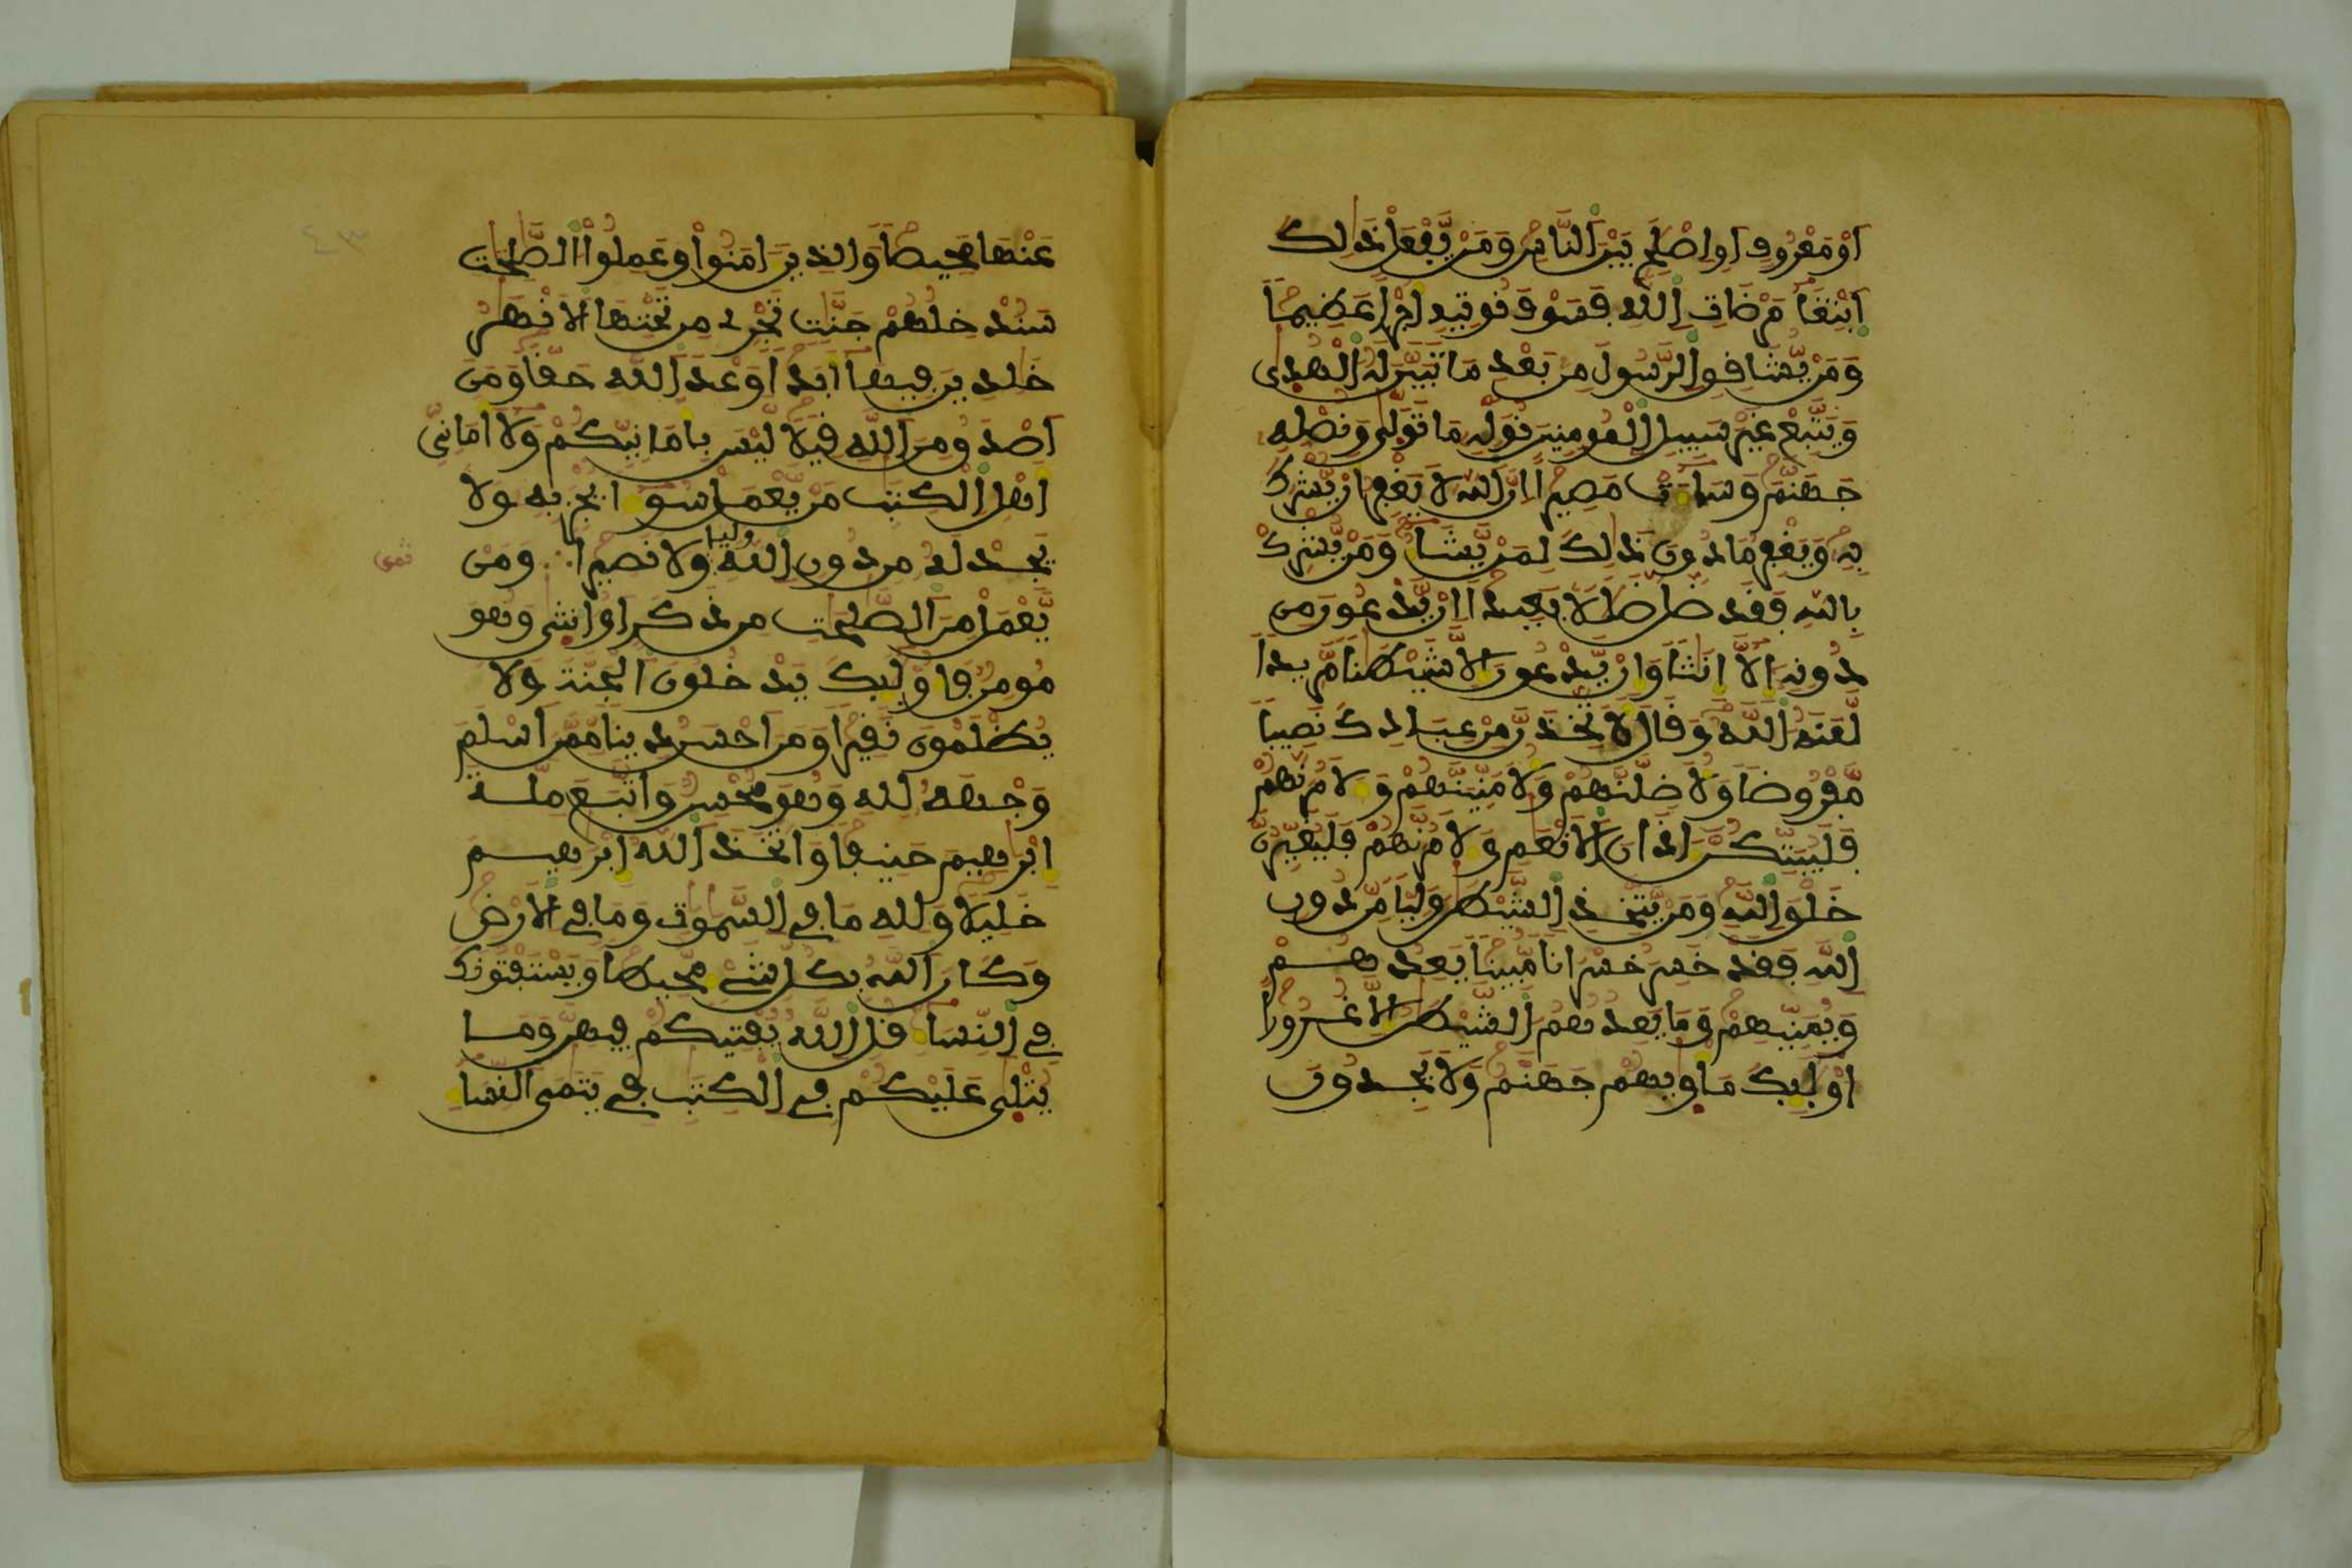 اَوْ مَعْرُوفٍ اَوِ اِصْلَٰحٍ بَيْنَ اَلنَّاسِ وَمَنْ يَّفْعَلْ ذَٰلِكَ
اَبْتِغَآءَ مَرْضَاتِ اِللَّهِ فَسَوْفَ نُوتِيهِ أَجْراً عَظِيماً
وَمَنْ يُّشَافِقِ اِلرَّسُولَ مِنۢ بَعْدِ مَا تَبَيَّنَ لَهُ اُلْهُدَىٰ
وَيَتَّبِعْ غَيْرَ سَبِيلِ اِلْمُومِنِينَ نُوَلِّهِۦ مَا تَوَلَّىٰ وَنُصْلِهِۦ
جَهَنَّمَ وَسَآءَتْ مَصِيراً اِنَّ اَللَّهَ لَا يَغْفِرُ أَنْ يُّشْرَكَ
بِهِۦ وَيَغْفِرُ مَا دُونَ ذَٰلِكَ لِمَنْ يَّشَآءُ وَمَنْ يُّشْرِكْ
بِاللَّهِ فَقَدْ ضَلَّ ضَلَٰلاً بَعِيداً اِنْ يَّدْعُونَ مِن
دُونِهِۦٓ إِلَّآ إِنَٰثاً وَإِنْ يَّدْعُونَ إِلَّا شَيْطَٰناً مَّرِيداً
لَّعَنَهُ اُللَّهُ وَقَالَ لَأَتَّخِذَنَّ مِنْ عِبَادِكَ نَصِيباً
مَّفْرُوضاً وَلَأُضِلَّنَّهُمْ وَلَأُمَنِّيَنَّهُمْ وَلَأَمُرَنَّهُمْ
فَلَيُبَتِّكُنَّ ءَاذَانَ اَلَانْعَٰمِ وَلَأَمُرَنَّهُمْ فَلَيُغَيِّرُنَّ
خَلْقَ اَللَّهِ وَمَنْ يَّتَّخِذِ اِلشَّيْطَٰنَ وَلِيّاً مِّن دُونِ
اِللَّهِ فَقَدْ خَسِرَ خُسْرَاناً مُّبِيناً يَعِدُهُمْ
وَيُمَنِّيهِمْ وَمَا يَعِدُهُمُ اُلشَّيْطَٰنُ إِلَّا غُرُوراً
اُوْلَٰٓئِكَ مَأْوَىٰهُمْ جَهَنَّمُ وَلَا يَجِدُونَ
عَنْهَا مَحِيصاً وَالذِينَ ءَامَنُواْ وَعَمِلُواْ اُلصَّٰلِحَٰتِ
سَنُدْخِلُهُمْ جَنَّٰتٍ تَجْرِے مِن تَحْتِهَا اَلَانْهَٰرُ
خَٰلِدِينَ فِيهَآ أَبَداً وَعْدَ اَللَّهِ حَقّاً وَمَنَ
اَصْدَقُ مِنَ اَللَّهِ قِيلاً لَّيْسَ بِأَمَانِيِّكُمْ وَلَآ أَمَانِيِّ
أَهْلِ اِلْكِتَٰبِ مَنْ يَّعْمَلْ سُوٓءاً يُجْزَ بِهِۦ وَلَا
يَجِدْ لَهُۥ مِن دُونِ اِللَّهِ وليا وَلَا نَصِيراً ∴ وَمَنْ
ثمن
يَّعْمَلْ مِنَ اَلصَّٰلِحَٰتِ مِن ذَكَرٍ اَوُ انثَىٰ وَهُوَ
مُومِنٌ فَأُوْلَٰٓئِكَ يَدْخُلُونَ اَلْجَنَّةَ وَلَا
يُظْلَمُونَ نَقِيراً وَمَنَ اَحْسَنُ دِيناً مِّمَّنَ اَسْلَمَ
وَجْهَهُۥ لِلهِ وَهُوَ مُحْسِنٌ وَاتَّبَعَ مِلَّةَ
إِبْرَٰهِيمَ حَنِيفاً وَاتَّخَذَ اَللَّهُ إِبْرَٰهِيمَ
خَلِيلاً وَلِلهِ مَا فِے اِلسَّمَٰوَٰتِ وَمَا فِے اِلَارْضِ
وَكَانَ اَللَّهُ بِكُلِّ شَےْءٍ مُّحِيطاً وَيَسْتَفْتُونَكَ
فِے اِلنِّسَآءِ قُلِ اِللَّهُ يُفْتِيكُمْ فِيهِنَّ وَمَا
يُتْلَىٰ عَلَيْكُمْ فِے اِلْكِتَٰبِ فِے يَتَٰمَى اَلنِّسَآءِ